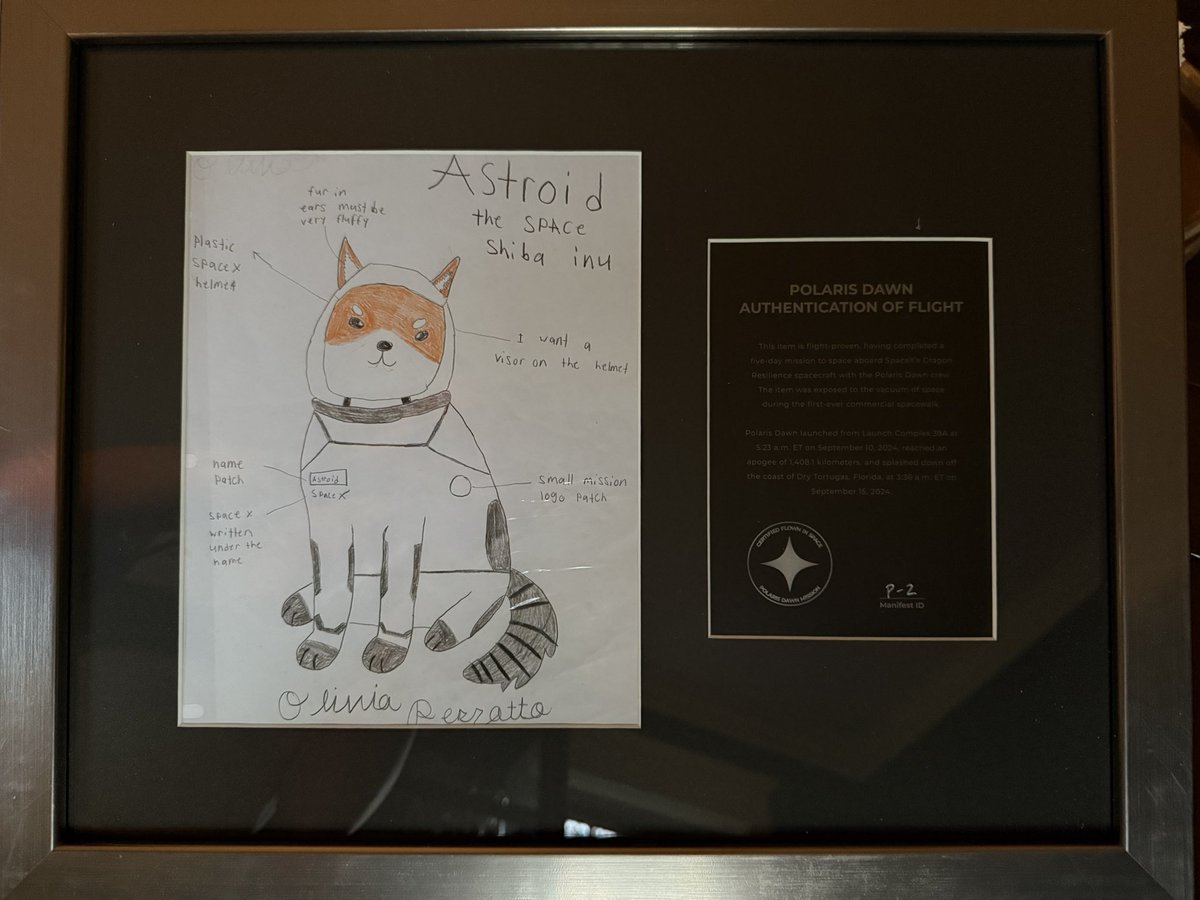 Astroid
the SPACE
Shiba inu
fur in
ears must be
very fluffy
plastic
space x
helmet
I want a
visor on the helmet
name
patch
Astroid
Space X
small mission
logo patch
space x
written
under the
name
Olivia Perrotto
POLARIS DAWN
AUTHENTICATION OF FLIGHT
This item is flight-proven, having completed a
five-day mission to space aboard SpaceX's Dragon
Resilience spacecraft with the Polaris Dawn crew.
The item was exposed to the vacuum of space
during the first-ever commercial spacewalk.
Polaris Dawn launched from Launch Complex 39A at
5:23 a.m. ET on September 10, 2024, reached an
apogee of 1,408.1 kilometers, and splashed down off
the coast of Dry Tortugas, Florida, at 3:36 a.m. ET on
September 15, 2024.
CERTIFIED FLOWN IN SPACE
POLARIS DAWN MISSION
P-2
Manifest ID